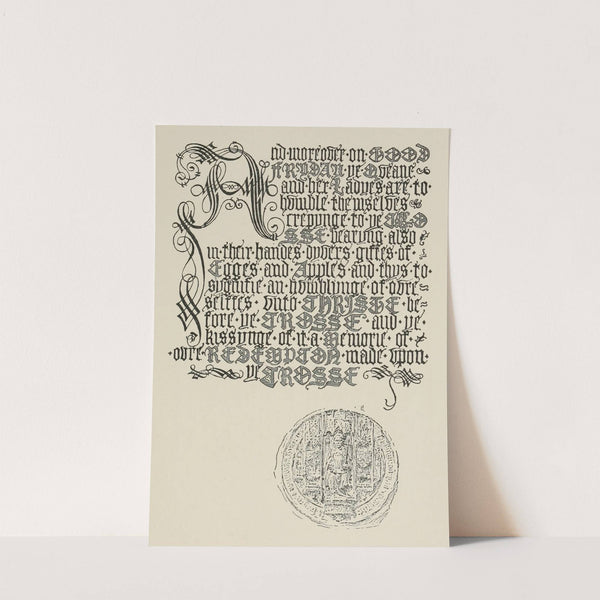 And·moreover·on·GOOD
FRYDAY·ye·Queane
and·her·Ladyes·are·to·
houmble·themselves
crepynge·to·ye·CRO
SSE·bearing·also
in·their·handes·dyvers·giftes·of·
Egges·and·Apples·and·thys·to·
sygnifie·an·houmblynge·of·ovre
selffes·vnto·CHRISTE·be-
fore·ye·CROSSE·and·ye·
kissynge·of·it·a·Memorie·of·
·ovre·REDEMPTON·made·vpon·
ye·CROSSE